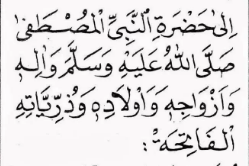 اِلٰى حَضْرَةِ النَّبِيِّ الْمُصْطَفٰى
صَلَّى اللهُ عَلَيْهِ وَسَلَّمَ وَاٰلِهٖ
وَاَزْوَاجِهٖ وَاَوْلَادِهٖ وَذُرِّيَّاتِهٖ
اَلْفَاتِحَةْ :